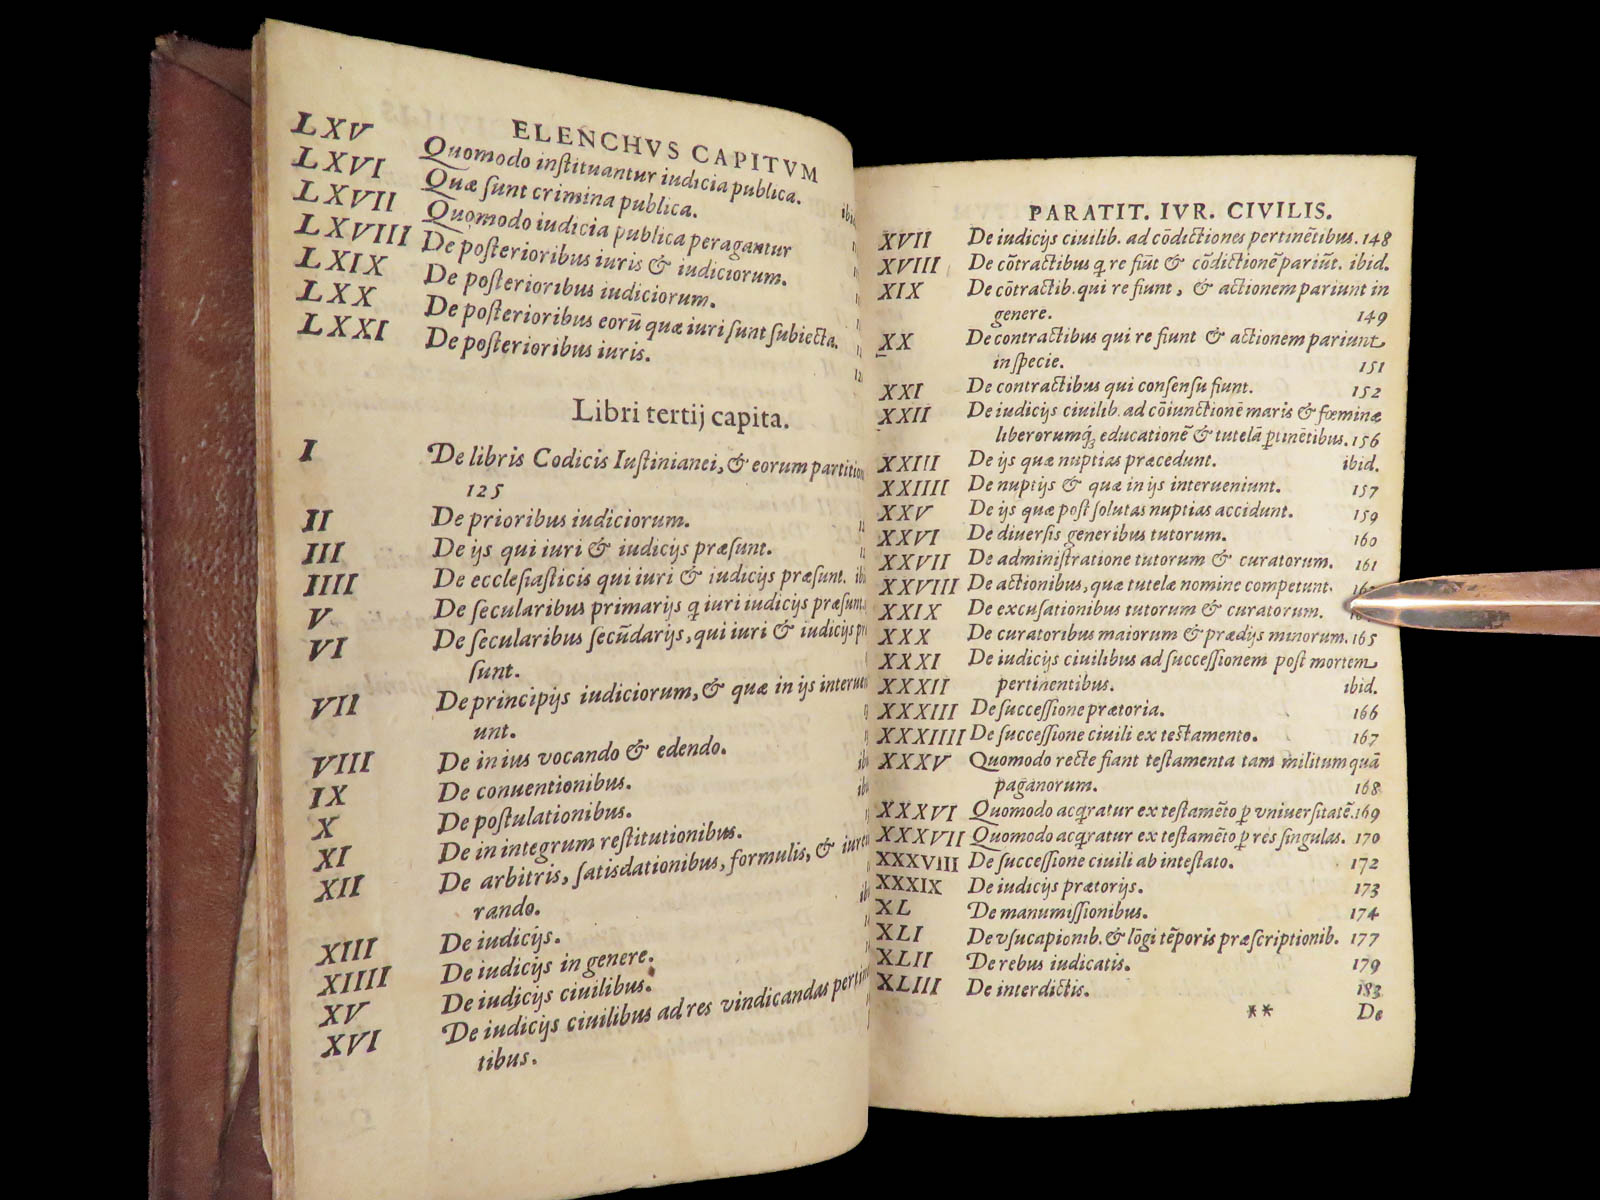 ELENCHVS CAPITVM
LXV Quomodo inſtituantur iudicia publica.
LXVI Quæ ſunt crimina publica.
LXVII Quomodo iudicia publica peragantur
LXVIII De poſterioribus iuris & iudiciorum.
LXIX De poſterioribus iudiciorum.
LXX De poſterioribus eorū quæ iuri ſunt ſubiecta.
LXXI De poſterioribus iuris.
Libri tertij capita.
I De libris Codicis Iuſtinianei, & eorum
125
II De prioribus iudiciorum.
III De ijs qui iuri & iudicijs præſunt.
IIII De eccleſiaſticis qui iuri & iudicijs præſunt.
V De ſecularibus primarijs q̃ iuri iudicijs præſunt
VI De ſecularibus ſecūdarijs, qui iuri & iudicijs
ſunt.
VII De principijs iudiciorum, & quæ in ijs
unt.
VIII De in ius vocando & edendo.
IX De conuentionibus.
X De poſtulationibus.
XI De in integrum reſtitutionibus.
XII De arbitris, ſatisdationibus, formulis, &
rando.
XIII De iudicijs.
XIIII De iudicijs in genere.
XV De iudicijs ciuilibus.
XVI De iudicijs ciuilibus ad res vindicandas
tibus.
PARATIT. IVR. CIVILIS.
XVII De iudicijs ciuilib. ad cōdictiones pertinētibus. 148
XVIII De cōtractibus q̃ re fiūt & cōdictionē pariūt. ibid.
XIX De cōtractib. qui re fiunt, & actionem pariunt in
genere. 149
XX De contractibus qui re fiunt & actionem pariunt
in ſpecie. 151
XXI De contractibus qui conſenſu fiunt. 152
XXII De iudicijs ciuilib. ad cōiunctionē maris & fœminæ
liberorumq́; educationē & tutelā ꝑtinētibus. 156
XXIII De ijs quæ nuptias præcedunt. ibid.
XXIIII De nuptijs & quæ in ijs interueniunt. 157
XXV De ijs quæ poſt ſolutas nuptias accidunt. 159
XXVI De diuerſis generibus tutorum. 160
XXVII De adminiſtratione tutorum & curatorum. 161
XXVIII De actionibus, quæ tutelæ nomine competunt.
XXIX De excuſationibus tutorum & curatorum.
XXX De curatoribus maiorum & prædijs minorum. 165
XXXI De iudicijs ciuilibus ad ſucceſſionem poſt mortem
XXXII pertinentibus. ibid.
XXXIII De ſucceſſione prætoria. 166
XXXIIII De ſucceſſione ciuili ex teſtamento. 167
XXXV Quomodo recte fiant teſtamenta tam militum quā
paganorum. 168
XXXVI Quomodo acq̃ratur ex teſtamēto ꝑ vniuerſitatē. 169
XXXVII Quomodo acq̃ratur ex teſtamēto ꝑ res ſingulas. 170
XXXVIII De ſucceſſione ciuili ab inteſtato. 172
XXXIX De iudicijs prætorijs. 173
XL De manumiſſionibus. 174
XLI De vſucapionib. & lōgi tēporis præſcriptionib. 177
XLII De rebus iudicatis. 179
XLIII De interdictis. 183
** De